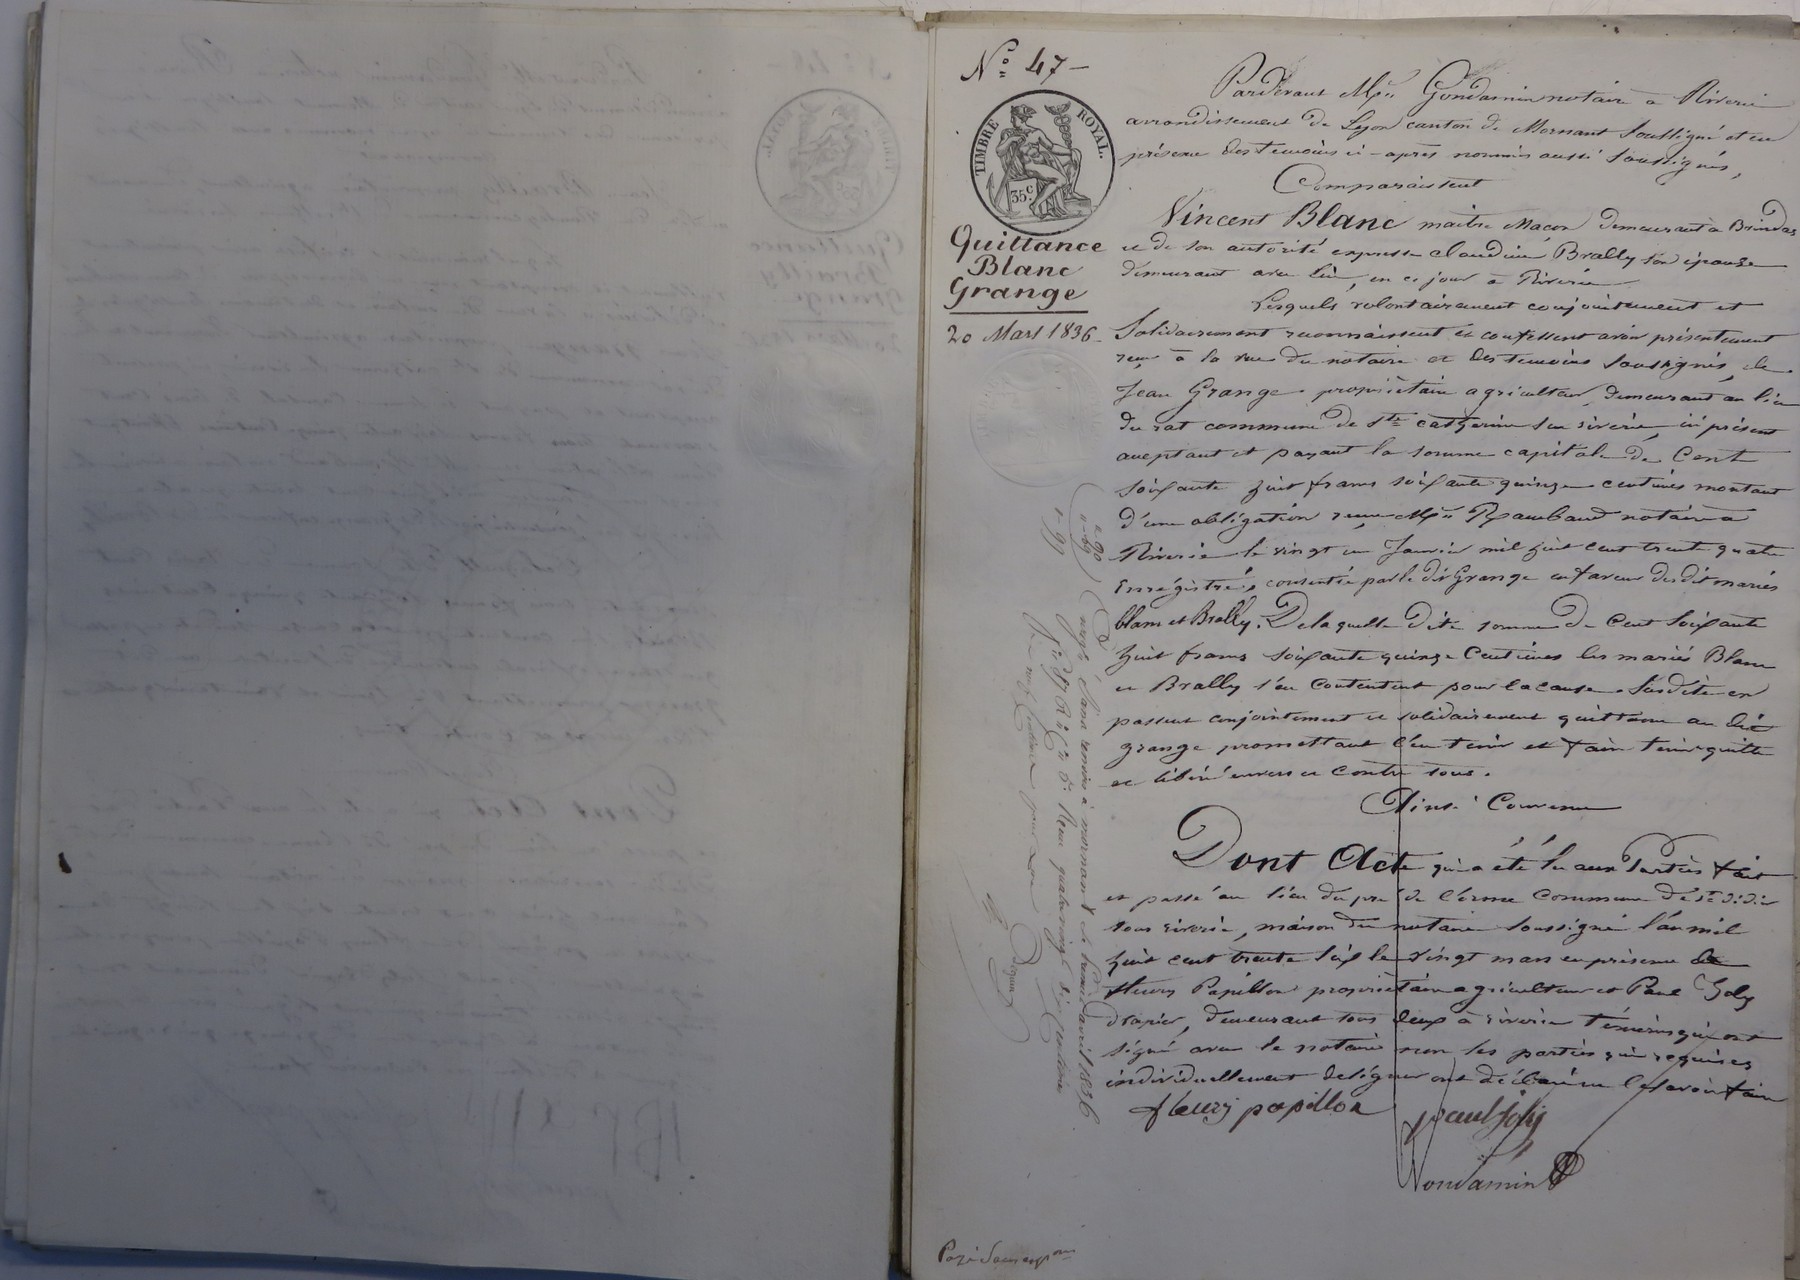 N° 47
TIMBRE ROYAL.
35 c
Quittance
Blanc
Grange
20 Mars 1836
Pardevant Me Gondamin notaire à Riverie
arrondissement de Lyon canton de Mornant soussigné et en
présence des temoins ci-après nommés aussi soussignés,
Comparaissent
Vincent Blanc maitre Maçon demeurant à Brindas
et de son autorité expresse claudine Brally son épouse
demeurant avec lui, en ce jour à Riverie
Lesquels volontairement conjointement et
Solidairement reconnaissent et confessent avoir présentement
reçu à la vue du notaire et des temoins soussignés, de
Jean Grange propriétaire agriculteur, demeurant au lieu
du rat commune de Ste catherine sur riverie, ici présent
acceptant et payant la somme capitale de Cent
soixante huit francs soixante quinze centimes montant
d'une obligation reçue Me Raimbaud notaire à
Riverie le vingt un Janvier mil huit cent trente quatre
Enregistrée, consentie par le dit Grange en faveur desdits mariés
blanc et Brally. De laquelle dite somme de Cent soixante
huit francs soixante quinze Centimes les mariés Blanc
et Brally s'en contentent pour la cause susdite en
passent conjointement et solidairement quittance au dit
grange promettant l'en tenir et faire tenir quitte
et libéré envers et contre tous.
Ainsi Convenu
Dont Acte qui a été lu aux Parties fait
et passé au lieu du pré de l'orme Commune de St didier
sous riverie, maison du notaire soussigné l'an mil
huit cent trente six le vingt mars en présence de
fleury Papillon propriétaire agriculteur et Paul Joly
drapier, demeurant tous deux à riverie témoins qui ont
signé avec le notaire non les parties qui requises
individuellement de signer ont déclaré ne le savoir faire
fleury papillon
paul joly
Gondamin
Enregistré sans renvoi à mornant le premier avril 1836
Reçu quatre vingt dix centimes